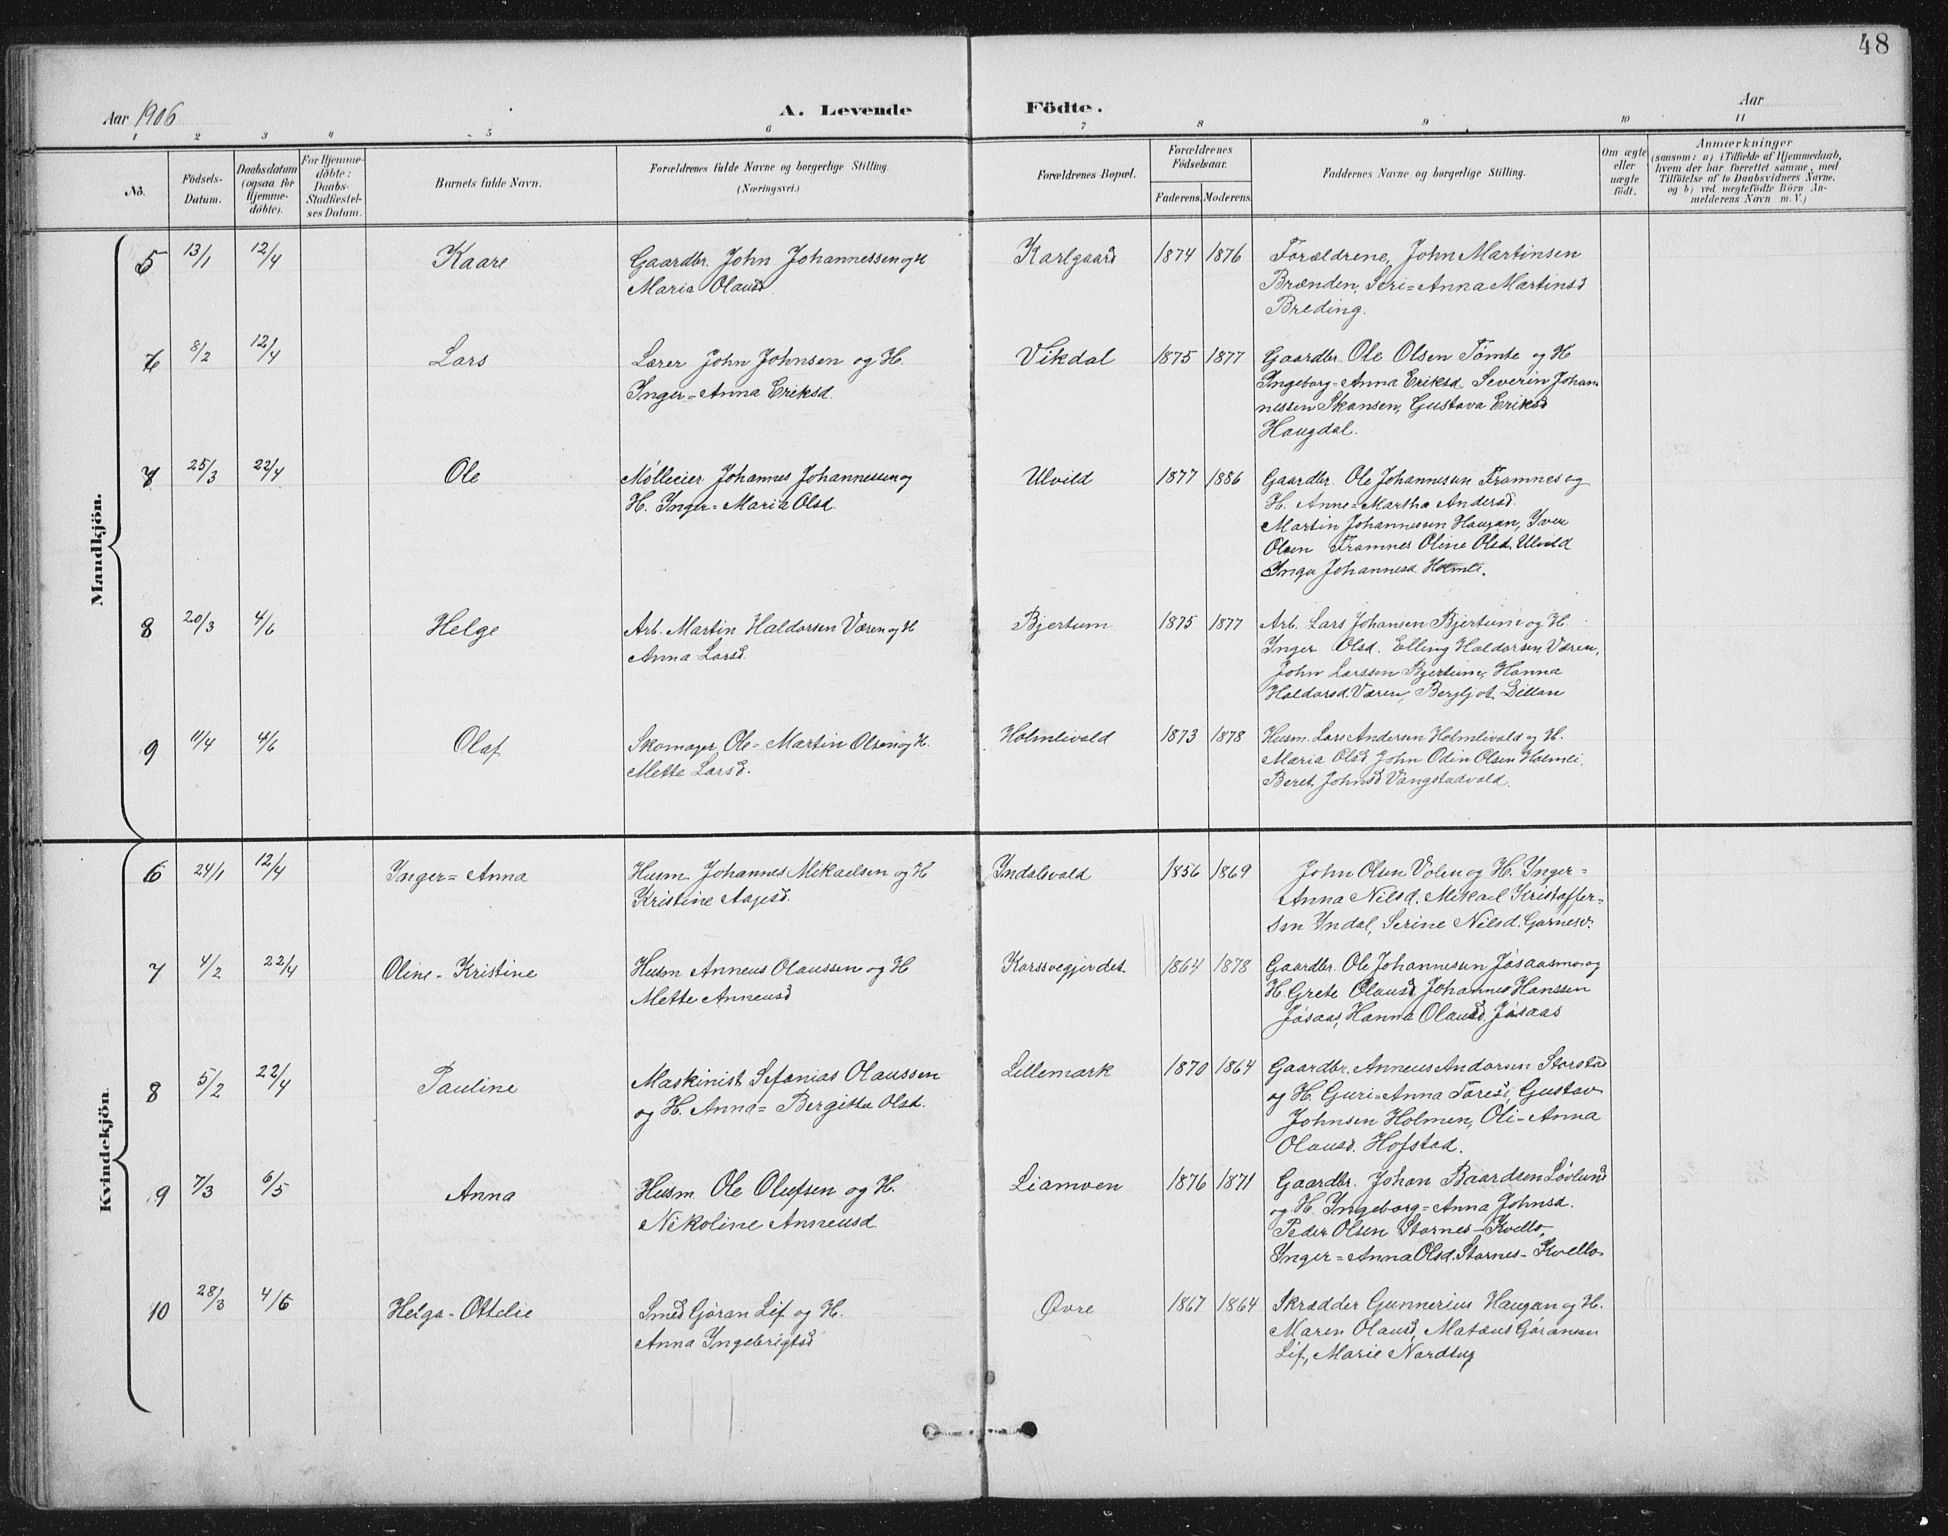 48
Aar 1906
A. Levende Födte.
Aar
1 2 3 4 5 6 7 8 9 10 11
No.
Födsels-
Datum.
Daabsdatum
(ogsaa för
Hjemme-
döbte).
For Hjemme-
döbte:
Daabs-
Stadfestel-
ses Datum.
Barnets fulde Navn.
Forældrenes fulde Navne og borgerlige Stilling.
(Næringsvei.)
Forældrenes Bopæl.
Forældrenes
Födselsaar.
Faderens. Moderens.
Faddernes Navne og borgerlige Stilling.
Om ægte
eller
uægte
födt.
Anmærkninger
(saasom: a) i Tilfælde af Hjemmedaab,
hvem der har forrettet samme, med
Tilföielse af to Daabsvidners Navne.
og b) ved uægtefödte Börn An-
melderens Navn m. V.)
Mandkjön.
5 13/1 12/4 Kaare Gaardbr. John Johannessen og H Karlgaard 1874 1876 Forældrene, John Martinsen
Maria Olausd. Brænden, Seri=Anna Martinsd
Breding.
6 8/2 12/4 Lars Lærer John Johnsen og H. Vikdal 1875 1877 Gaardbr. Ole Olsen Tømte og H
Inger=Anna Eriksd. Ingeborg=Anna Eriksd Severin Johan
nessen Skansen, Gustava Eriksd
Haugdal.
7 25/3 22/4 Ole Møllerier Johannes Johannessen og Ulvild 1877 1886 Gaardbr. Ole Johannesen Framnes og
H. Inger=Maria Olsd. H. Anne=Martha Andersd.
Martin Johannessen Haugan, Iver
Olsen Framnes Oline Olsd. Ulvild
Inga Johannesd. Holmli.
8 20/3 4/6 Helge Arb. Martin Haldorsen Væren og H Bjertum 1875 1877 Arb. Lars Johansen Bjertum og H.
Anna Larsd. Inger Olsd. Elling Haldorsen Væren,
John Larssen Bjertum, Hanna
Haldorsd. Væren, Bergljot Dillan
9 11/4 4/6 Olaf Skomager Ole=Martin Olsen og H. Holmlivald 1873 1878 Husm. Lars Andersen Holmlivald og H.
Mette Larsd. Maria Olsd John Odin Olsen Holmli.
Beret Johnsd Vangstadvald.
Kvindekjön.
6 24/1 12/4 Inger=Anna Husm Johannes Mikaelsen og H Yndalsvald 1856 1869 John Olsen Volen og H. Inger=
Kristine Aagesd. Anna Nilsd. Mikael Kristaffer-
sen Yndal, Serine Nilsd. Garnesv.
7 4/2 22/4 Oline-Kristine Husm Anneus Olaussen og H Korssvegjerdet 1864 1878 Gaardbr. Ole Johannesen Jøsaasmo og
Mette Anneusd H. Grete Olausd Johannes Hanssen
Jøsaas, Hanna Olausd. Jøsaas
8 5/2 22/4 Pauline Maskinist Sefanias Olaussen Lillemark 1870 1864 Gaardbr. Anneus Andorsen Storstad
og H. Anna=Bergitta Olsd. og H. Guri=Anna Toresd, Gustav
Johnsen Holmen, Oli=Anna
Olausd. Hofstad.
9 7/3 6/5 Anna Husm Ole Olufsen og H. Liamoen 1876 1871 Gaardbr. Johan Baardsen Løvlund
Nikoline Anneusd og H. Ingeborg=Anna Johnsd.
Peder Olsen Stornes-Kvello,
Inger=Anna Olsd. Stornes-Kvello
10 28/3 4/6 Helga-Ottelie Smed Gøran Lif og H. Øvre 1867 1864 Skrædder Gunnerius Haugan og H.
Anna Ingebrigtsd Maren Olausd, Matæus Gøransen
Lif, Marie Nordtug